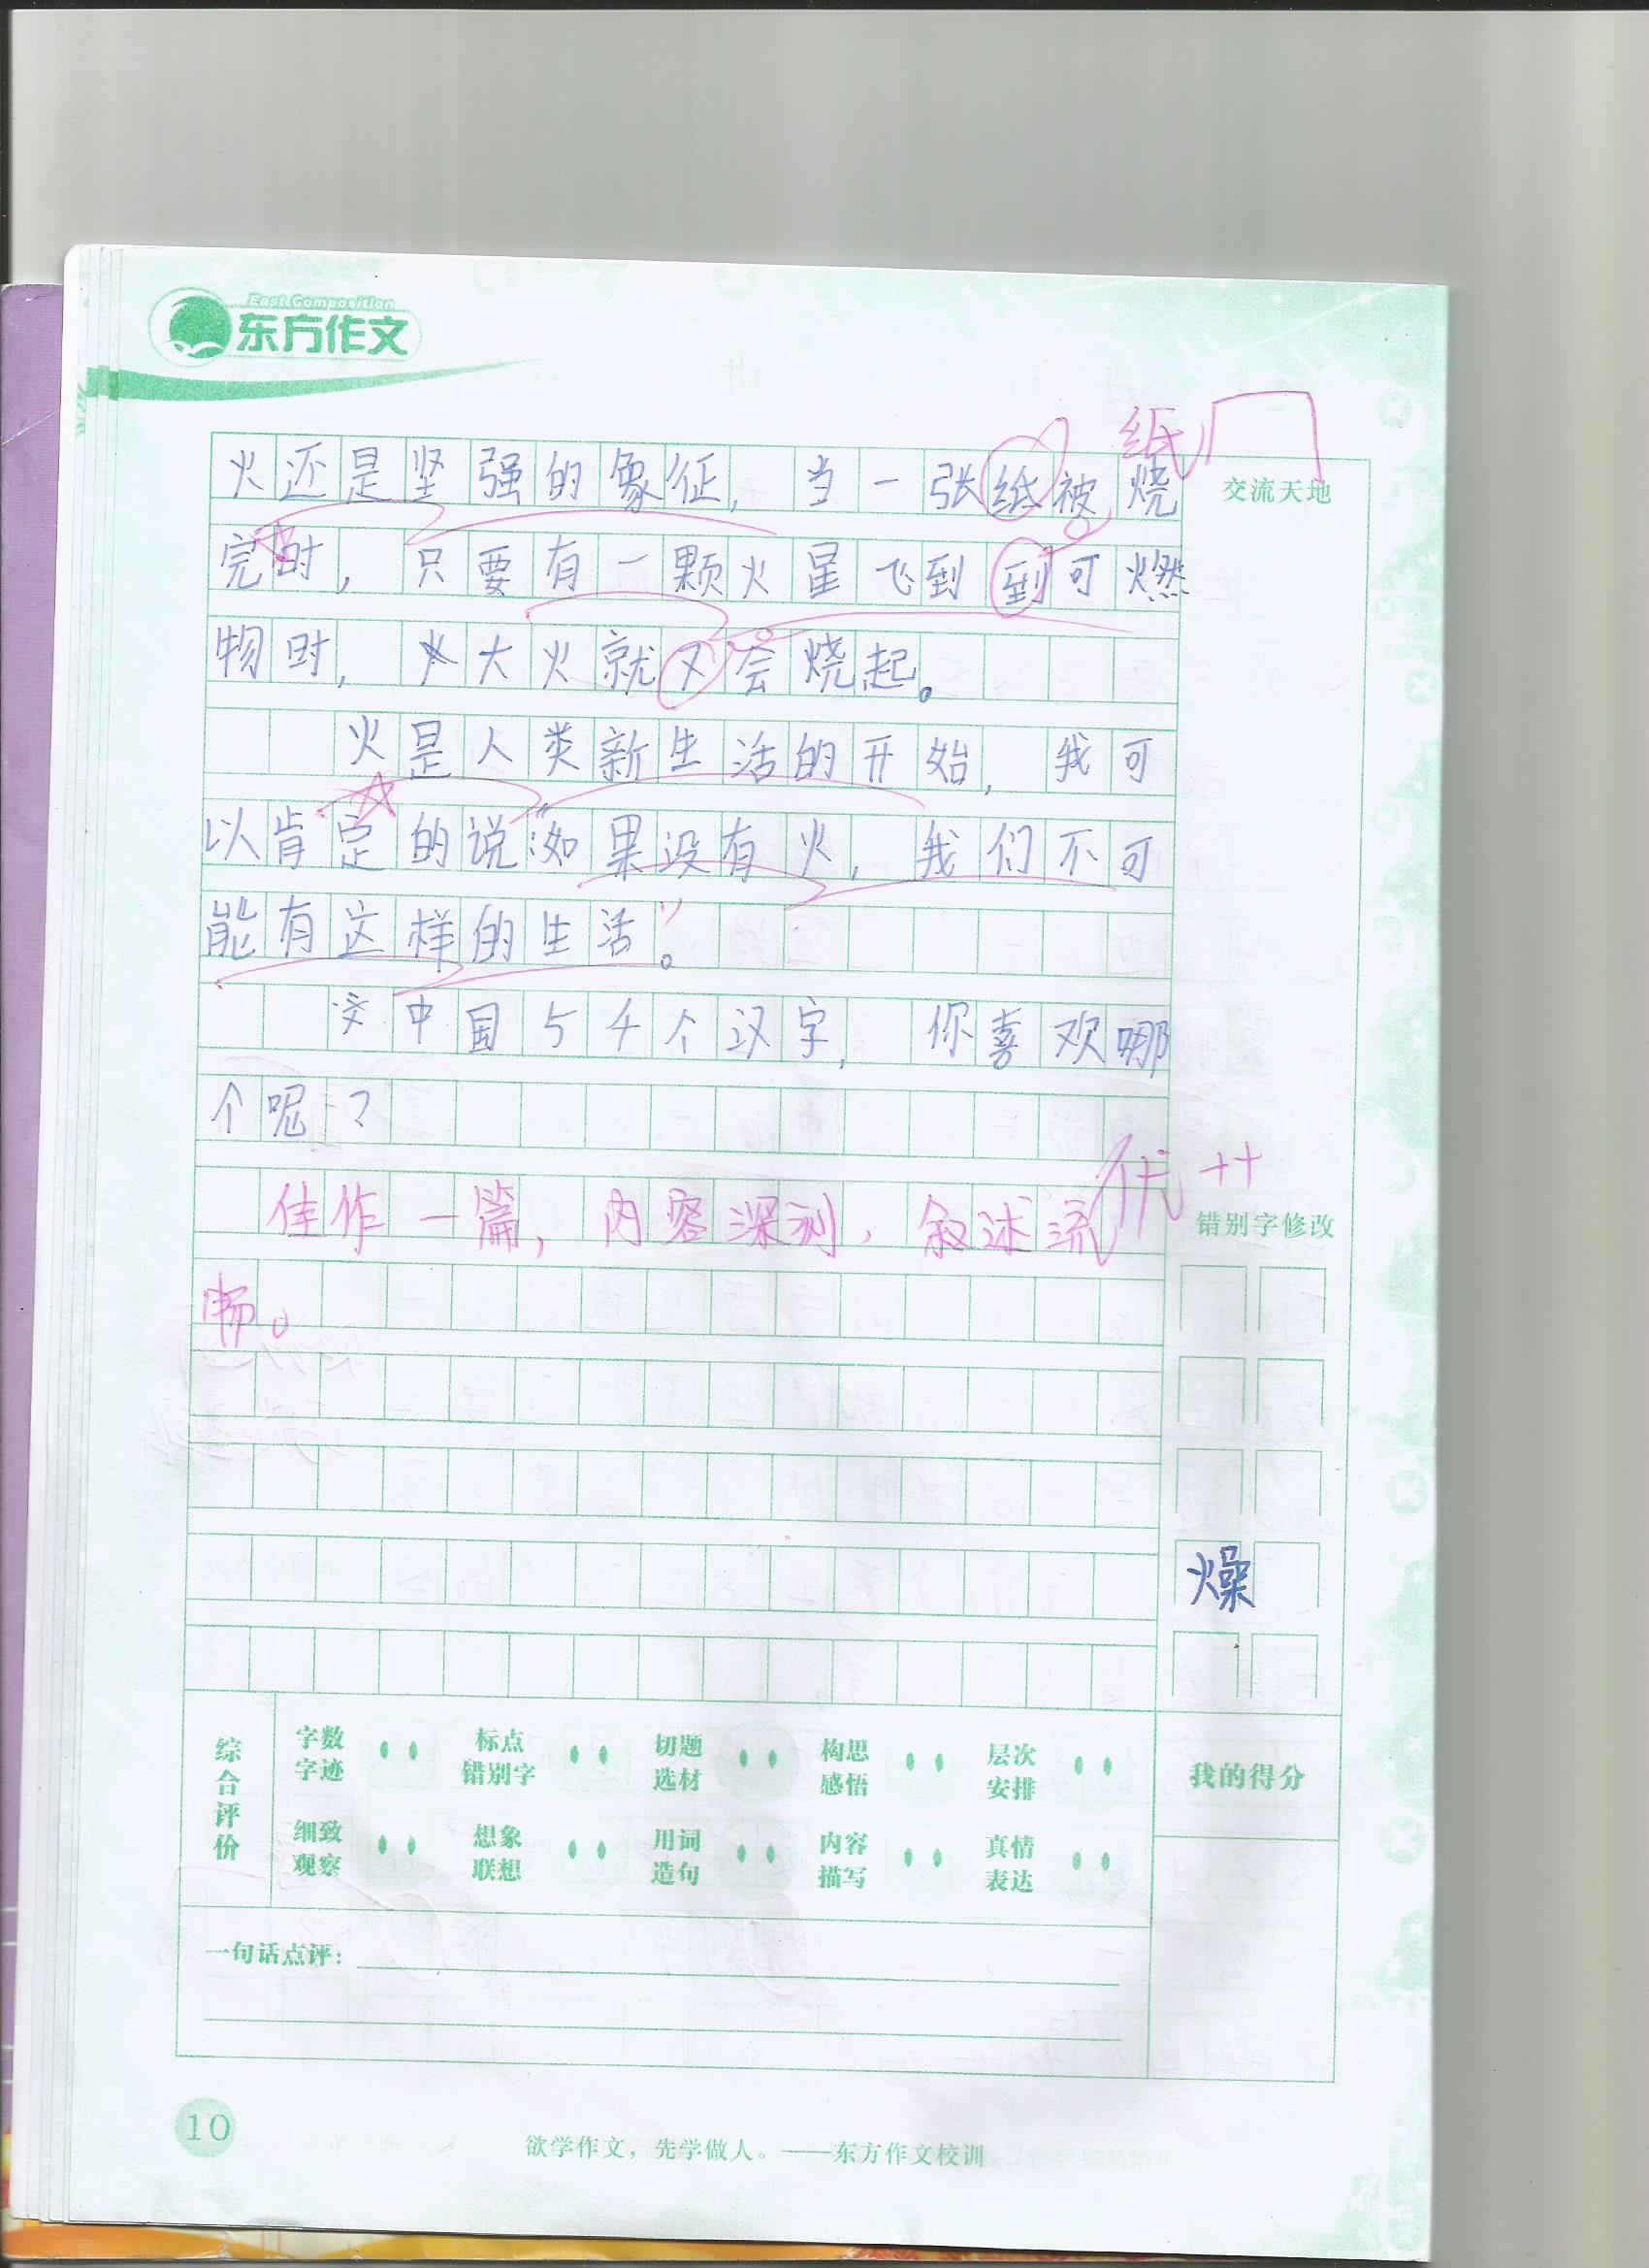 East Composition
东方作文
纸
火还是坚强的象征，当一张纸被烧
交流天地
完时，只要有一颗火星飞到到可燃
物时，大火就又会烧起。
火是人类新生活的开始，我可
以肯定的说："如果没有火，我们不可
能有这样的生活"。
中国5千个汉字，你喜欢哪
个呢？
优++
佳作一篇，内容深刻，叙述流
畅。
错别字修改
燥
综合评价
字数字迹
标点错别字
切题选材
构思感悟
层次安排
我的得分
细致观察
想象联想
用词造句
内容描写
真情表达
一句话点评：
10
欲学作文，先学做人。——东方作文校训